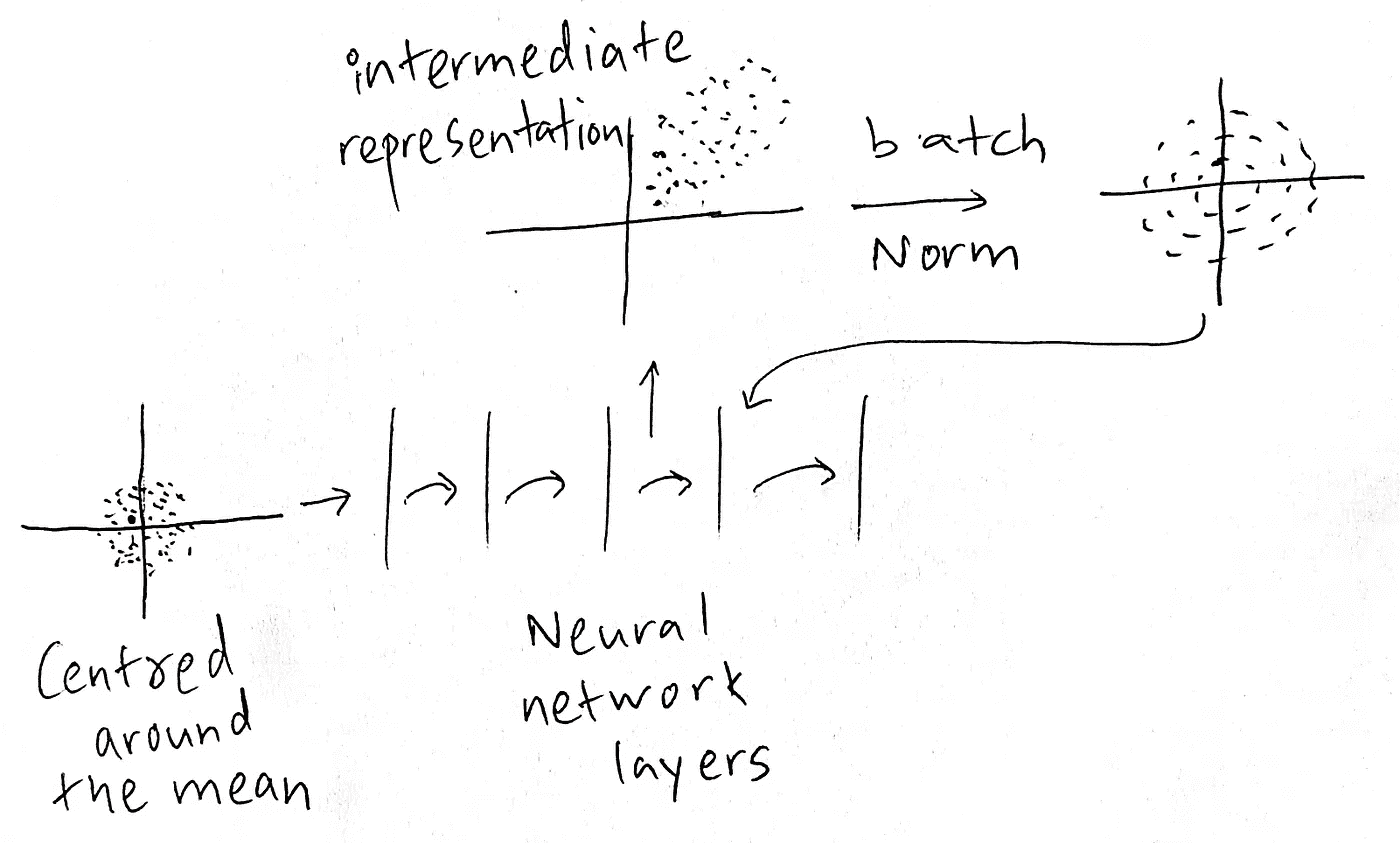 intermediate
representation
batch
Norm
Centred
around
the mean
Neural
network
layers